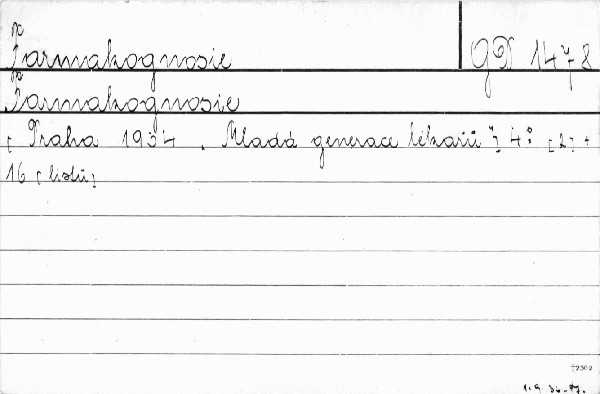 p
Farmakognosie GD 1478
p
Farmakognosie
[Praha 1934. Mladá generace lékařů"] 4° [2] +
16 [listů]
72302